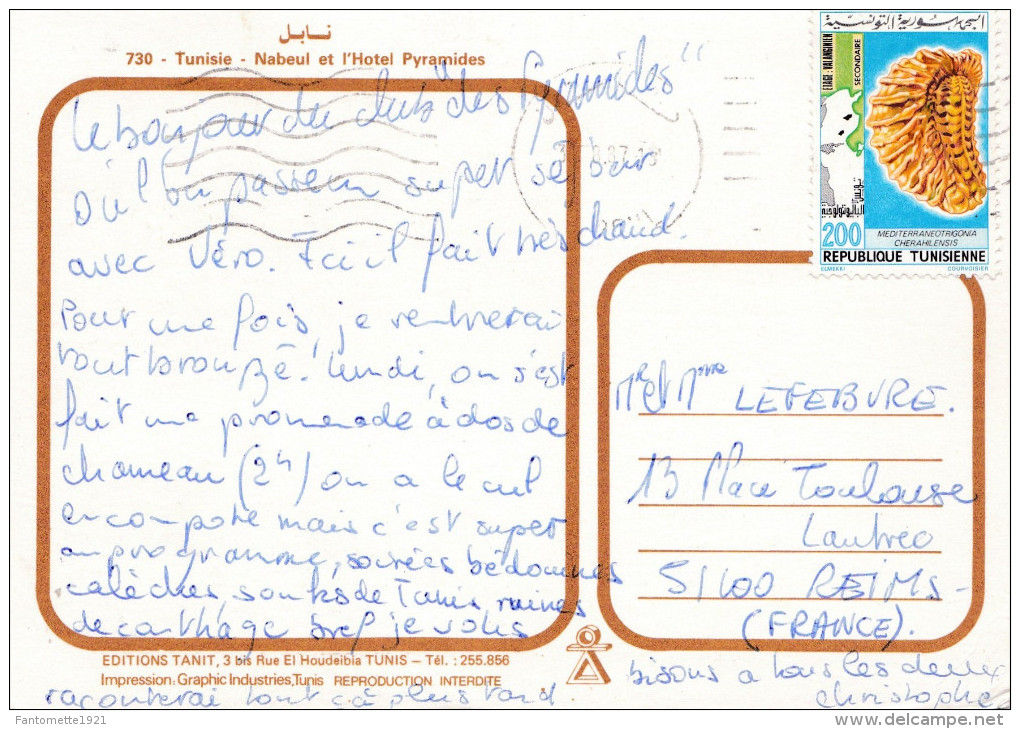 نابل
730 - Tunisie - Nabeul et l'Hotel Pyramides
le bonjour du club "des Pyramides"
où l'on passe un super séjour
avec Véro. Ici il fait très chaud.
Pour une fois, je rentrerai
tout bronzé. Lundi, on s'est
fait une promenade à dos de
chameau (2h) on a le cul
en compote mais c'est super
au programme, soirées bédouines
calèches, souks de Tunis, ruines
de carthage bref je vous
EDITIONS TANIT, 3 bis Rue El Houdeibia TUNIS - Tél. : 255.856
Impression: Graphic Industries, Tunis REPRODUCTION INTERDITE
raconterai tout ça plus tard.
bisous a tous les deux
christophe
Mr et Mme LEFEBVRE.
13 Place Toulouse
Lautrec
51100 REIMS -
(FRANCE).
الجمهورية التونسية
ETAGE: VALANGINIEN
SECONDAIRE
200
MEDITERRANEOTRIGONIA
CHERAHILENSIS
REPUBLIQUE TUNISIENNE
ELMEKKI COURVOISIER
Fantomette1921
delcampe.net